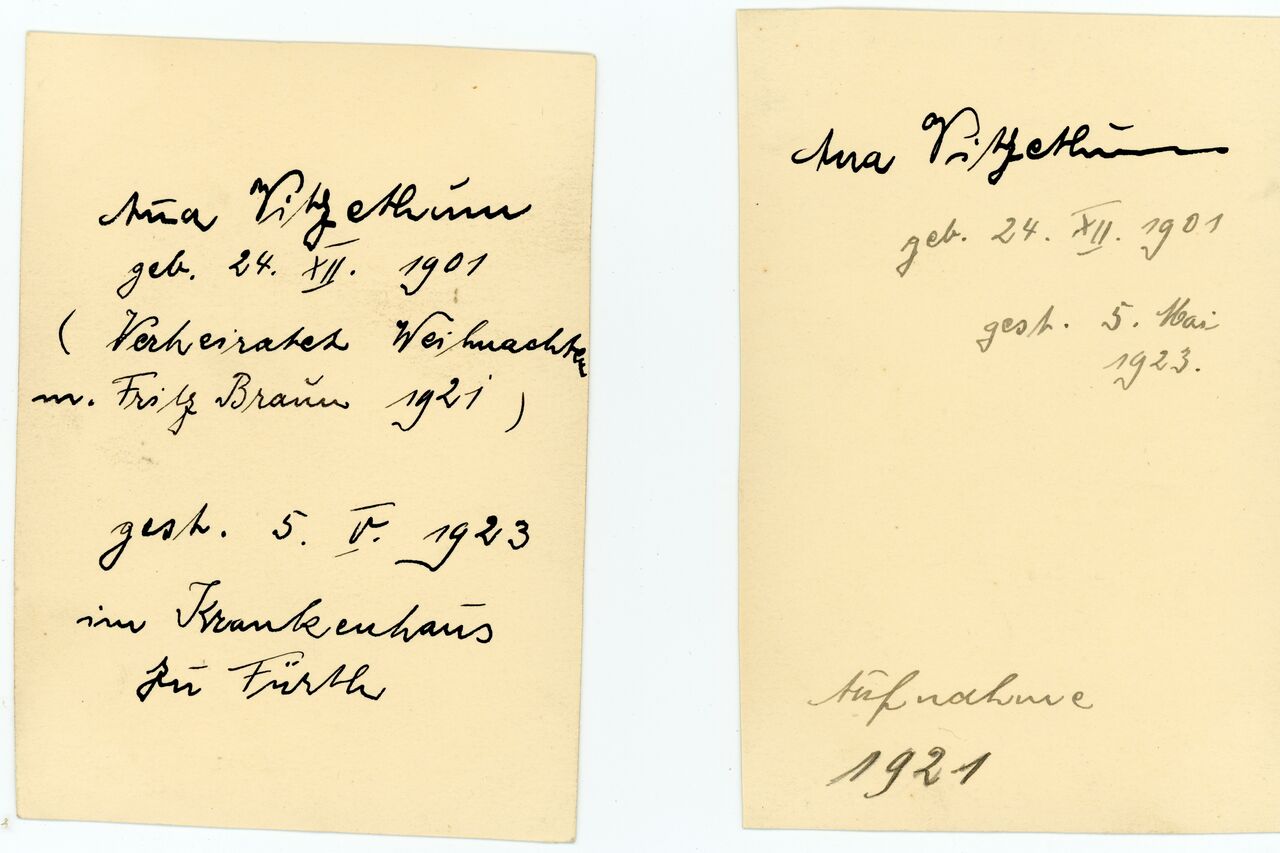 An̄a Vitzethum
geb. 24. XII. 1901
( Verheiratet Weihnachten
m. Fritz Braun 1921 )
gest. 5. V. 1923
im Krankenhaus
zu Fürth
Ana Vitzethum
geb. 24. XII. 1901
gest. 5. Mai
1923.
Aufnahme
1921